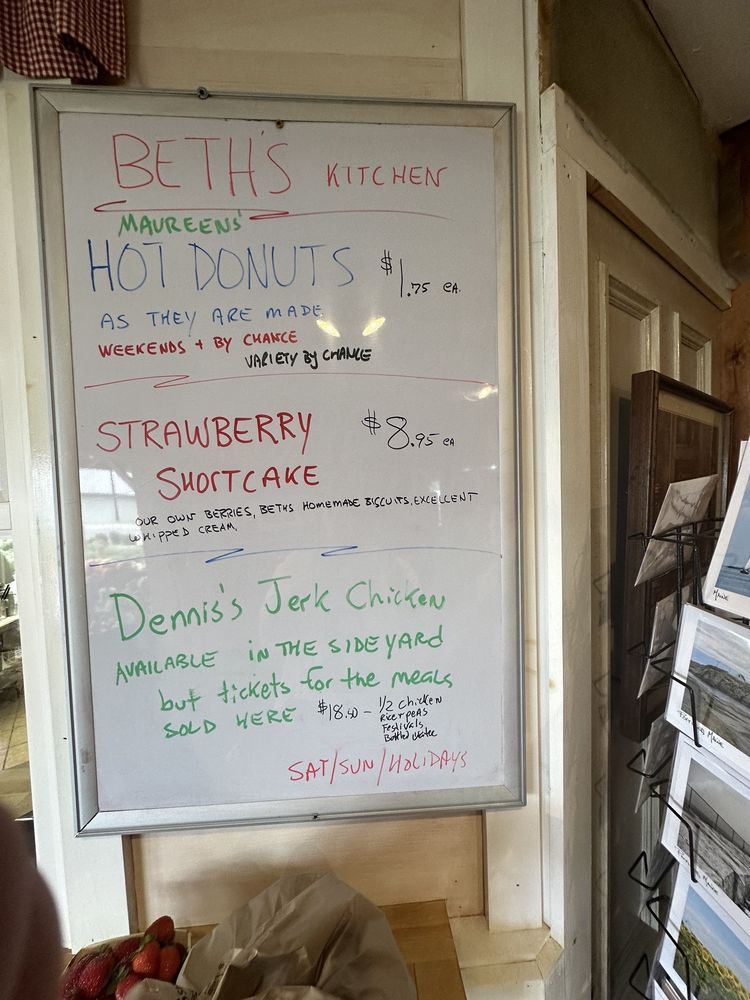 BETH'S KITCHEN
MAUREENS'
HOT DONUTS $1.75 ea.
AS THEY ARE MADE
WEEKENDS + BY CHANCE
VARIETY BY CHANCE
STRAWBERRY $8.95 ea
SHORTCAKE
OUR OWN BERRIES, BETHS HOMEMADE BISCUITS, EXCELLENT
WHIPPED CREAM.
Dennis's Jerk Chicken
AVAILABLE IN THE SIDEYARD
but tickets for the meals
SOLD HERE $18.50 - 1/2 Chicken
Rice + peas
Festivals
Bottled water
SAT/SUN/HOLIDAYS
MAINE
MAINE
MAINE